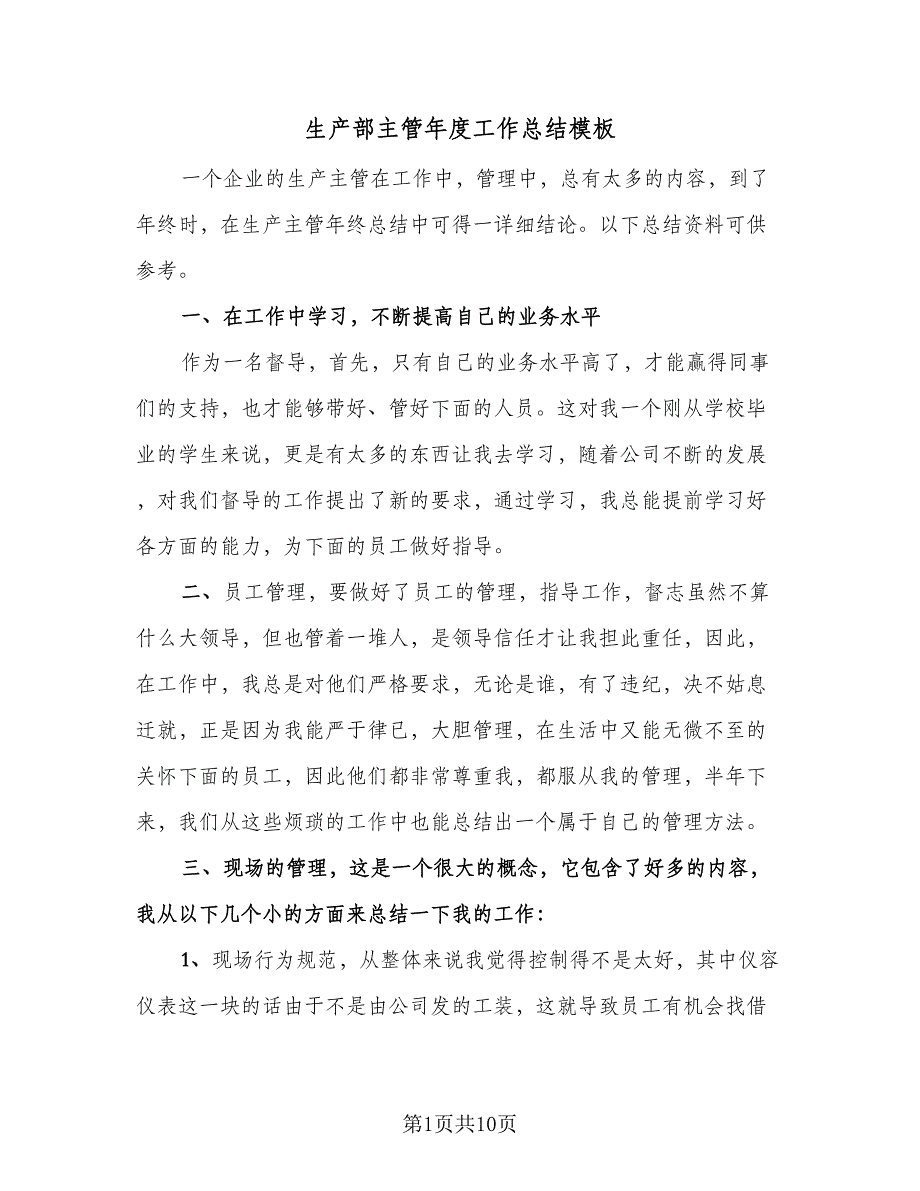 生产部主管年度工作总结模板
一个企业的生产主管在工作中，管理中，总有太多的内容，到了
年终时，在生产主管年终总结中可得一详细结论。以下总结资料可供
参考。
一、在工作中学习，不断提高自己的业务水平
作为一名督导，首先，只有自己的业务水平高了，才能赢得同事
们的支持，也才能够带好、管好下面的人员。这对我一个刚从学校毕
业的学生来说，更是有太多的东西让我去学习，随着公司不断的发展
，对我们督导的工作提出了新的要求，通过学习，我总能提前学习好
各方面的能力，为下面的员工做好指导。
二、员工管理，要做好了员工的管理，指导工作，督志虽然不算
什么大领导，但也管着一堆人，是领导信任才让我担此重任，因此，
在工作中，我总是对他们严格要求，无论是谁，有了违纪，决不姑息
迁就，正是因为我能严于律已，大胆管理，在生活中又能无微不至的
关怀下面的员工，因此他们都非常尊重我，都服从我的管理，半年下
来，我们从这些烦琐的工作中也能总结出一个属于自己的管理方法。
三、现场的管理，这是一个很大的概念，它包含了好多的内容，
我从以下几个小的方面来总结一下我的工作：
1、现场行为规范，从整体来说我觉得控制得不是太好，其中仪容
仪表这一块的话由于不是由公司发的工装，这就导致员工有机会找借
第1页共10页